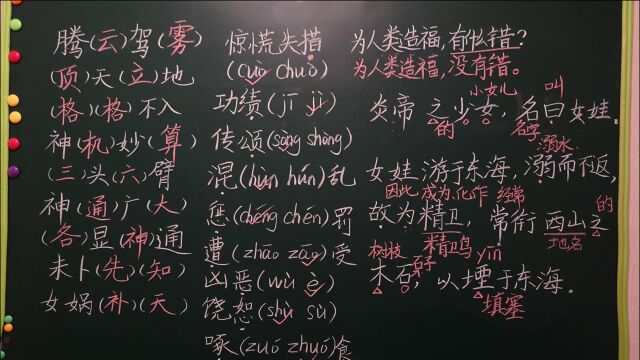 腾(云)驾(雾)
(顶)天(立)地
(格)(格)不入
神(机)妙(算)
(三)头(六)臂
神(通)广(大)
(各)显(神)通
未卜(先)(知)
女娲(补)(天)
惊慌失措
(cuò chuò)
功绩(jī jì)
传颂(sòng shòng)
混(hùn hún)乱
惩(chéng chén)罚
遭(zhāo zāo)受
凶恶(wù è)
饶恕(shù sù)
啄(zuó zhuó)食
为人类造福,有什么错?
为人类造福,没有错。
小女儿 叫
炎帝之少女,名曰女娃。
的 名字 溺水
女娃游于东海,溺而不返,
因此 成为、化作 经常 的
故为精卫,常衔西山之
树枝 石子 精卫鸟 yīn 地名
木石,以堙于东海。
填塞